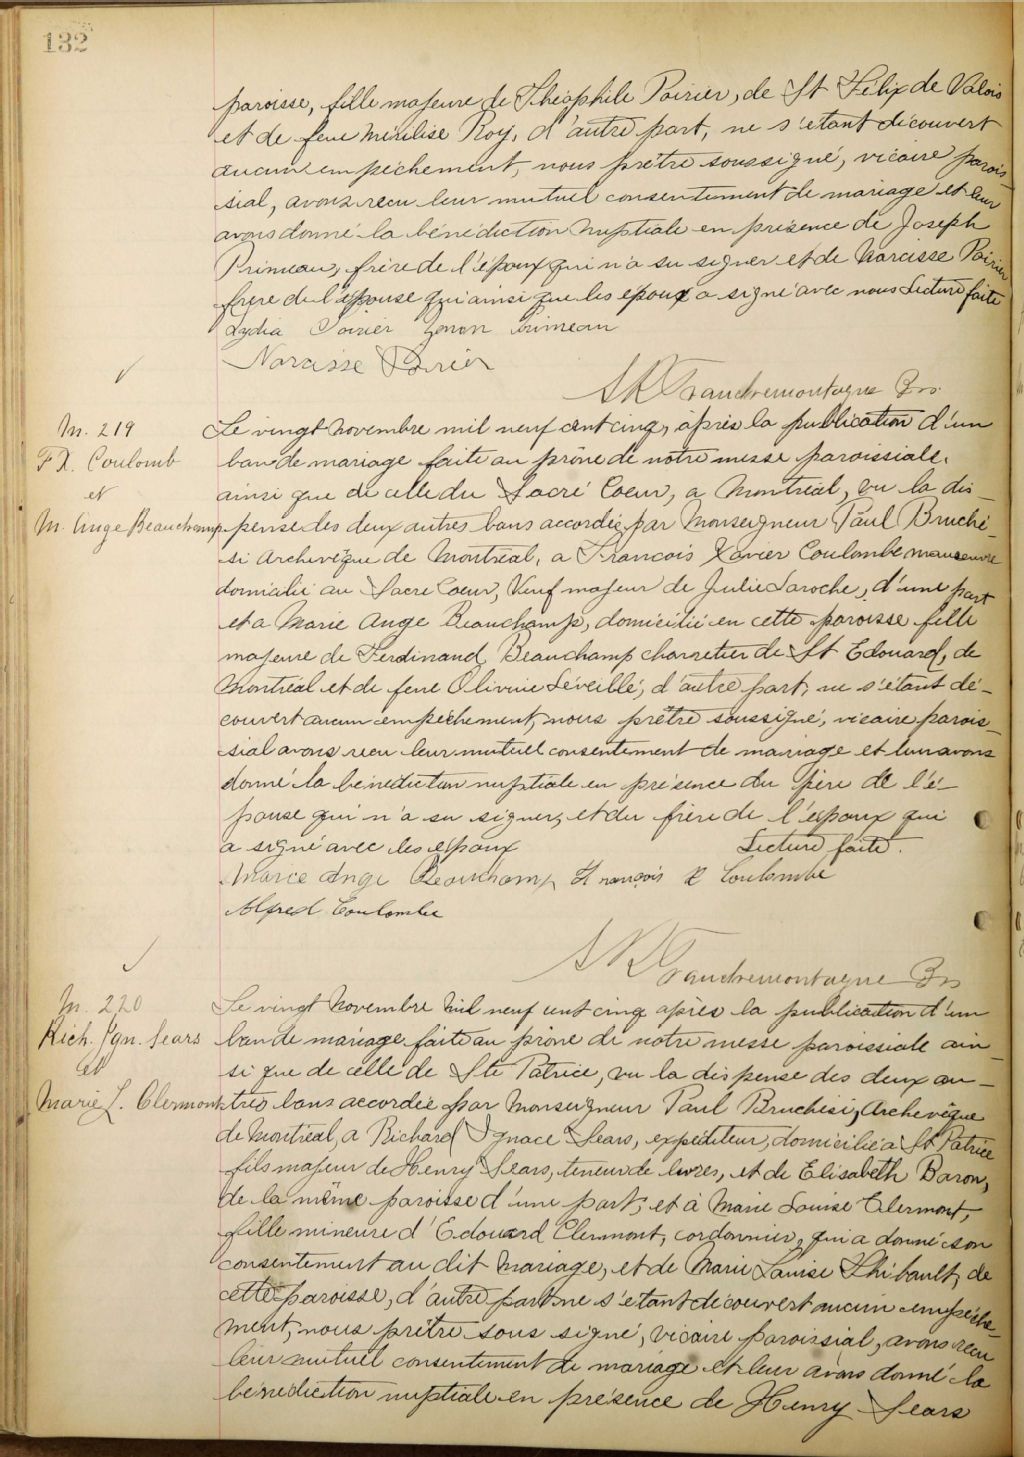 132
paroisse, fille majeure de Théophile Poirier, de St Félix de Valois
et de feue Mérilise Roy, d'autre part, ne s'étant découvert
aucun empêchement, nous prêtre soussigné, vicaire parois-
sial, avons reçu leur mutuel consentement de mariage et leur
avons donné la bénédiction nuptiale en présence de Joseph
Primeau, frère de l'époux qui n'a su signer et de Narcisse Poirier
frère de l'épouse qui ainsi que les époux a signé avec nous Lecture faite
Lydia Poirier Zenon Primeau
Narcisse Poirier
M. 219
F X. Coulomb
et
M. Ange Beauchamp
Le vingt Novembre mil neuf cent cinq, après la publication d'un
ban de mariage faite au prône de notre messe paroissiale,
ainsi que de celle du Sacré Coeur, a Montréal, vu la dis-
pense des deux autres bans accordée par Monseigneur Paul Bruché-
si Archevêque de Montréal, a François Xavier Coulombe manoeuvre
domicilié au Sacré Coeur, Veuf majeur de Julie Laroche, d'une part
et a Marie Ange Beauchamp, domicilié en cette paroisse fille
majeure de Ferdinand Beauchamp charretier de St Edouard, de
Montréal et de feue Olivine Léveillé, d'autre part, ne s'étant dé-
couvert aucun empêchement, nous prêtre soussigné, vicaire parois-
sial avons reçu leur mutuel consentement de mariage et leur avons
donné la bénédiction nuptiale en présence du père de l'é-
pouse qui n'a su signer, et du frère de l'époux qui
a signé avec les époux Lecture faite.
Marie Ange Beauchamp François X Coulombe
Alfred Coulombe
M. 220
Rich. Ign. Sears
et
Marie L. Clermont
Le vingt Novembre Mil neuf cent cinq après la publication d'un
ban de mariage faite au prône de notre messe paroissiale ain-
si que de celle de Ste Patrice, vu la dispense des deux au-
tres bans accordée par Monseigneur Paul Bruchési, Archevêque
de Montréal, a Richard Ignace Sears, expéditeur, domicilié a St Patrice
fils majeur de Henry Sears, teneur de livres, et de Elisabeth Baron,
de la même paroisse d'une part, et à Marie Louise Clermont,
fille mineure d'Edouard Clermont, cordonnier, qui a donné son
consentement au dit mariage, et de Marie Louise Thibault, de
cette paroisse, d'autre part ne s'étant découvert aucun empêche-
ment, nous prêtre sous signé, vicaire paroissial, avons reçu
leur mutuel consentement de mariage et leur avons donné la
bénédiction nuptiale en présence de Henry Sears